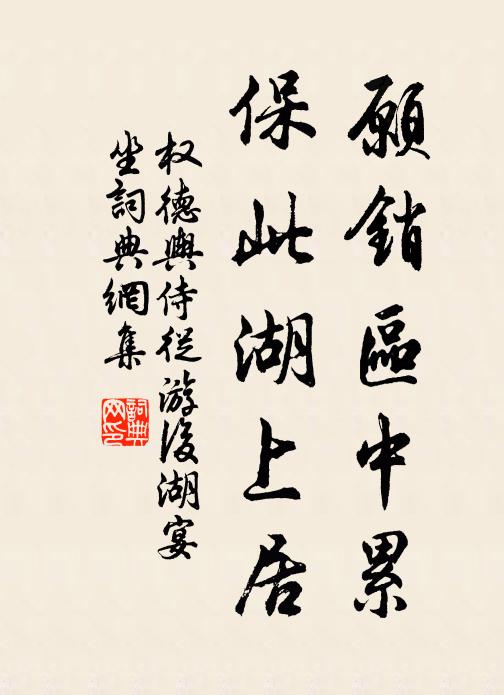 願銷區中累
保此湖上居
权德輿侍從游後湖宴
坐詞典網集
詞典
网印